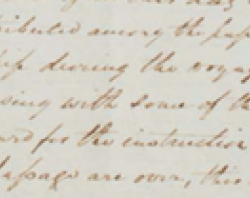 tributed among the pass
ship during the voya
sing with some of th
ward for the instruction
passage are over, this